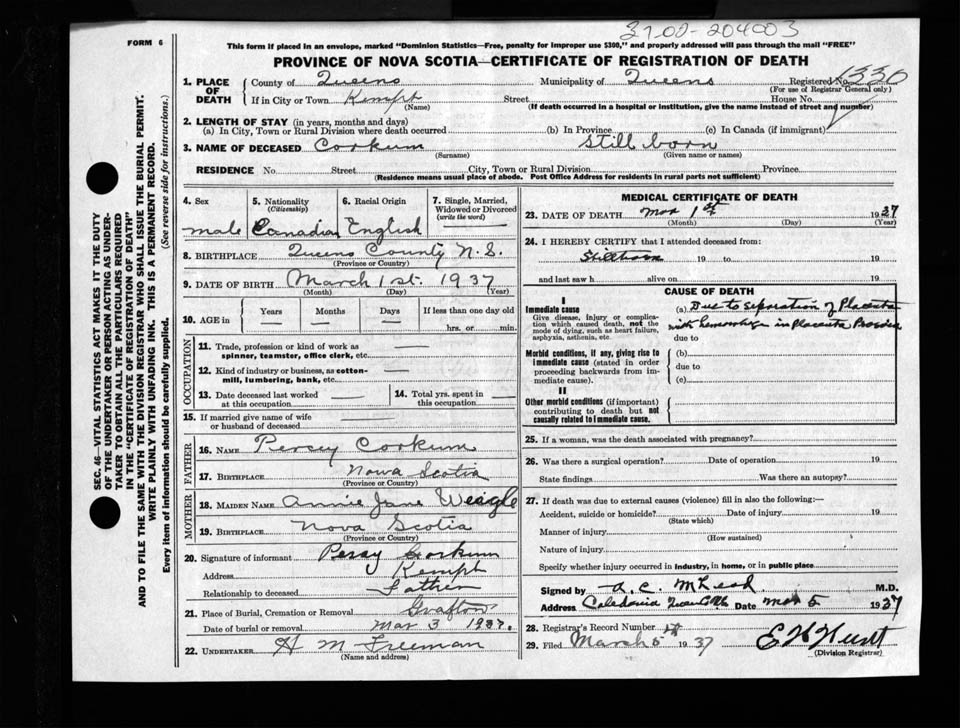 FORM 6
37-02-204003
This form if placed in an envelope, marked "Dominion Statistics—Free, penalty for improper use $300," and properly addressed will pass through the mail "FREE"
PROVINCE OF NOVA SCOTIA—CERTIFICATE OF REGISTRATION OF DEATH
1. PLACE OF DEATH County of Queens Municipality of Queens Registered No. 330
(For use of Registrar General only)
If in City or Town Kempt Street House No.
(Name) (If death occurred in a hospital or institution, give the name instead of street and number)
2. LENGTH OF STAY (in years, months and days)
(a) In City, Town or Rural Division where death occurred (b) In Province (c) In Canada (if immigrant)
3. NAME OF DECEASED Corkum Still born
(Surname) (Given name or names)
RESIDENCE No. Street City, Town or Rural Division Province
(Residence means usual place of abode. Post Office Address for residents in rural parts not sufficient)
4. Sex male
5. Nationality (Citizenship) Canadian
6. Racial Origin English
7. Single, Married, Widowed or Divorced (write the word)
8. BIRTHPLACE Queens County N.S.
(Province or Country)
9. DATE OF BIRTH March 1st. 1937
(Month) (Day) (Year)
10. AGE in Years Months Days If less than one day old
hrs. or min.
OCCUPATION
11. Trade, profession or kind of work as spinner, teamster, office clerk, etc.
12. Kind of industry or business, as cotton-mill, lumbering, bank, etc.
13. Date deceased last worked at this occupation
14. Total yrs. spent in this occupation
15. If married give name of wife or husband of deceased
FATHER
16. NAME Percy Corkum
17. BIRTHPLACE Nova Scotia
(Province or Country)
MOTHER
18. MAIDEN NAME Annie Jane Weagle
19. BIRTHPLACE Nova Scotia
(Province or Country)
20. Signature of informant Percy Corkum
Address Kempt
Relationship to deceased Father
21. Place of Burial, Cremation or Removal Grafton
Date of burial or removal Mar 3 1937.
22. UNDERTAKER H M Freeman
(Name and address)
MEDICAL CERTIFICATE OF DEATH
23. DATE OF DEATH Mar 1st 1937
(Month) (Day) (Year)
24. I HEREBY CERTIFY that I attended deceased from:
Stillborn 19 to 19
and last saw h alive on 19
CAUSE OF DEATH
I
Immediate cause
Give disease, injury or complication which caused death, not the mode of dying, such as heart failure, asphyxia, asthenia, etc.
(a) Due to separation of Placenta
with hemorrhage in placenta
due to
Morbid conditions, if any, giving rise to immediate cause (stated in order proceeding backwards from immediate cause).
(b)
due to
(c)
II
Other morbid conditions (if important) contributing to death but not causally related to immediate cause.
25. If a woman, was the death associated with pregnancy?
26. Was there a surgical operation? Date of operation 19
State findings Was there an autopsy?
27. If death was due to external causes (violence) fill in also the following:—
Accident, suicide or homicide? Date of injury 19
(State which)
Manner of injury
(How sustained)
Nature of injury
Specify whether injury occurred in industry, in home, or in public place
Signed by M.D.
Address Caledonia Date Mar 5 1937
28. Registrar's Record Number
29. Filed March 5th 1937
(Division Registrar)
SEC. 46—VITAL STATISTICS ACT MAKES IT THE DUTY
OF THE UNDERTAKER OR PERSON ACTING AS UNDER-
TAKER TO OBTAIN ALL THE PARTICULARS REQUIRED
IN THE "CERTIFICATE OF REGISTRATION OF DEATH"
AND TO FILE THE SAME WITH THE DIVISION REGISTRAR WHO SHALL ISSUE THE BURIAL PERMIT.
WRITE PLAINLY WITH UNFADING INK. THIS IS A PERMANENT RECORD.
Every item of information should be carefully supplied. (See reverse side for instructions.)